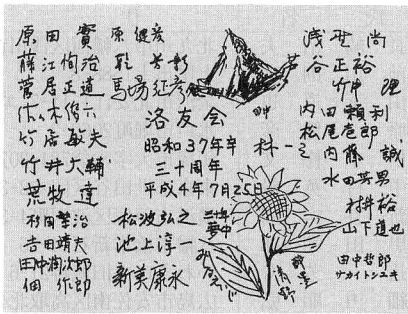 原田 實
藤江恂治
菅居正道
佐々木俊六
竹居敏夫
竹井大輔
荒牧 達
杉田繁治
吉田靖夫
田中潤次郎
佃 作郎
原 健彦
馬場征彦
洛友会
昭和37年卒
三十周年
平成4年7月25日
松波弘之
池上淳一
新美康永
田中
林
浅野 尚
谷 正裕
竹中 理
内田 頼利
松尾
内藤 誠
水田芳男
村井 裕
山下道也
田中哲郎
サカイトシユキ